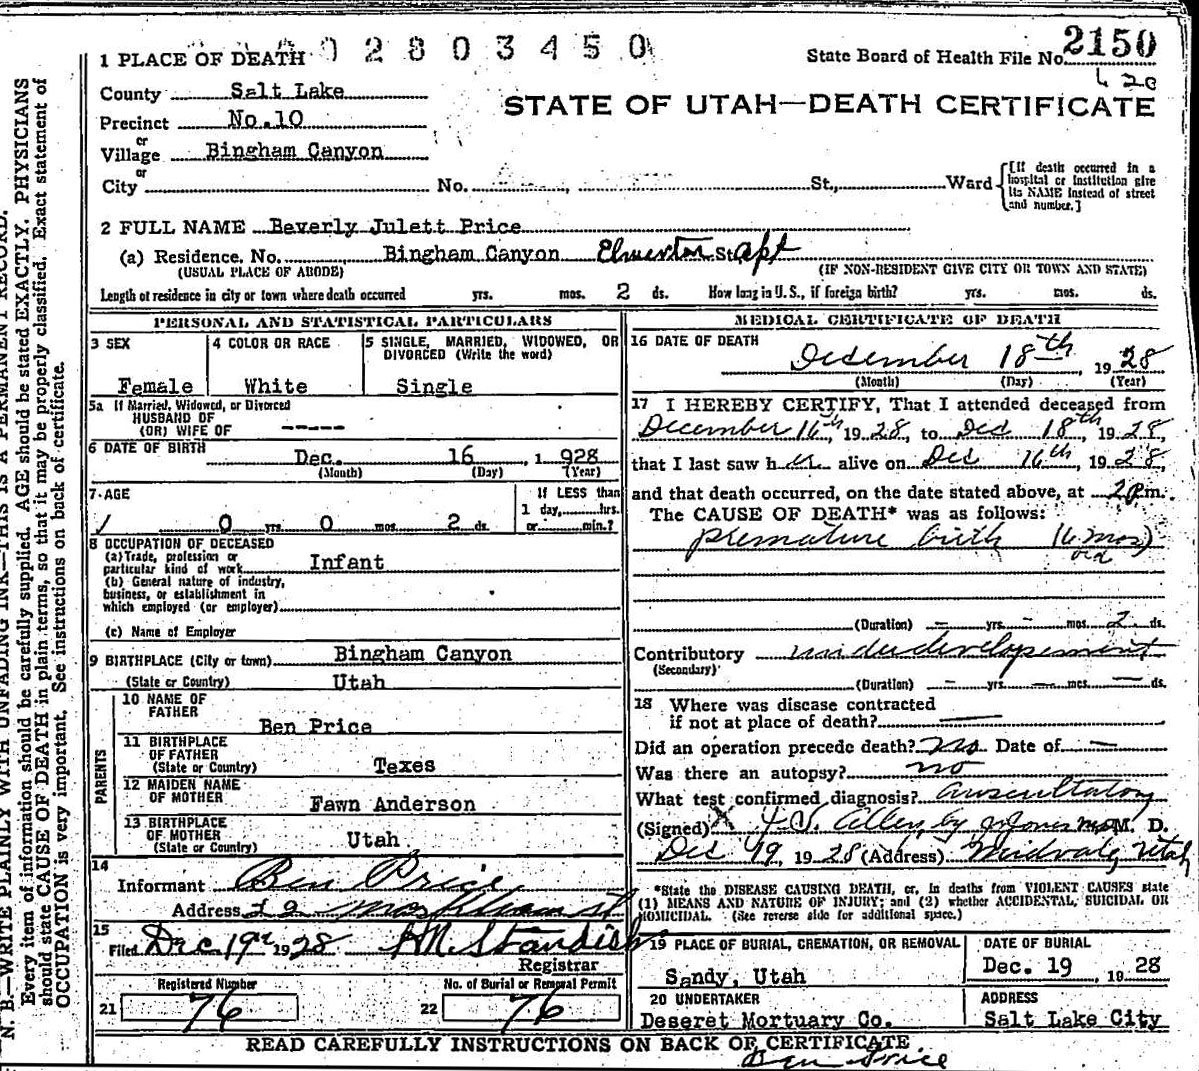 0 2 8 0 3 4 5 0
1 PLACE OF DEATH
State Board of Health File No. 2150
County Salt Lake
STATE OF UTAH—DEATH CERTIFICATE
Precinct No.10
or
Village Bingham Canyon
or
City No. St., Ward
[If death occurred in a hospital or institution give its NAME instead of street and number.]
2 FULL NAME Beverly Julett Price
(a) Residence. No. Bingham Canyon St. apt
(USUAL PLACE OF ABODE) (IF NON-RESIDENT GIVE CITY OR TOWN AND STATE)
Length of residence in city or town where death occurred yrs. mos. 2 ds. How long in U.S., if foreign birth? yrs. mos. ds.
PERSONAL AND STATISTICAL PARTICULARS
3 SEX
Female
4 COLOR OR RACE
White
5 SINGLE, MARRIED, WIDOWED, OR
DIVORCED (Write the word)
Single
5a If Married, Widowed, or Divorced
HUSBAND OF
(OR) WIFE OF -----
6 DATE OF BIRTH Dec. 16, 1928
(Month) (Day) (Year)
7 AGE
0 yrs 0 mos. 2 ds.
If LESS than
1 day, hrs.
or min.?
8 OCCUPATION OF DECEASED
(a) Trade, profession or
particular kind of work Infant
(b) General nature of industry,
business, or establishment in
which employed (or employer)
(c) Name of Employer
9 BIRTHPLACE (City or town) Bingham Canyon
(State or Country) Utah
PARENTS
10 NAME OF
FATHER
Ben Price
11 BIRTHPLACE
OF FATHER
(State or Country) Texes
12 MAIDEN NAME
OF MOTHER
Fawn Anderson
13 BIRTHPLACE
OF MOTHER
(State or Country) Utah
14
Informant Ben Price
Address
15
Filed Dec 19th 1928 H.M. Standish
Registrar
Registered Number
21 76
No. of Burial or Removal Permit
22 76
MEDICAL CERTIFICATE OF DEATH
16 DATE OF DEATH
December 18th, 1928
(Month) (Day) (Year)
17 I HEREBY CERTIFY, That I attended deceased from
December 16th, 1928, to Dec 18th, 1928,
that I last saw her alive on Dec 16th, 1928,
and that death occurred, on the date stated above, at 2 Pm.
The CAUSE OF DEATH* was as follows:
premature birth (6 mos)
old
(Duration) — yrs. — mos. 2 ds.
Contributory underdevelopement
(Secondary)
(Duration) — yrs. — mos. — ds.
18 Where was disease contracted
if not at place of death? —
Did an operation precede death? No Date of —
Was there an autopsy? no
What test confirmed diagnosis? Auscultatory
(Signed) Allen, by M. D.
Dec 19, 1928 (Address) Midvale, Utah
*State the DISEASE CAUSING DEATH, or, in deaths from VIOLENT CAUSES state
(1) MEANS AND NATURE OF INJURY; and (2) whether ACCIDENTAL, SUICIDAL OR
HOMICIDAL. (See reverse side for additional space.)
19 PLACE OF BURIAL, CREMATION, OR REMOVAL
Sandy, Utah
DATE OF BURIAL
Dec. 19, 1928
20 UNDERTAKER
Deseret Mortuary Co.
ADDRESS
Salt Lake City
READ CAREFULLY INSTRUCTIONS ON BACK OF CERTIFICATE
Ben Price
N. B.—WRITE PLAINLY WITH UNFADING INK—THIS IS A PERMANENT RECORD.
Every item of information should be carefully supplied. AGE should be stated EXACTLY. PHYSICIANS
should state CAUSE OF DEATH in plain terms, so that it may be properly classified. Exact statement of
OCCUPATION is very important. See instructions on back of certificate.